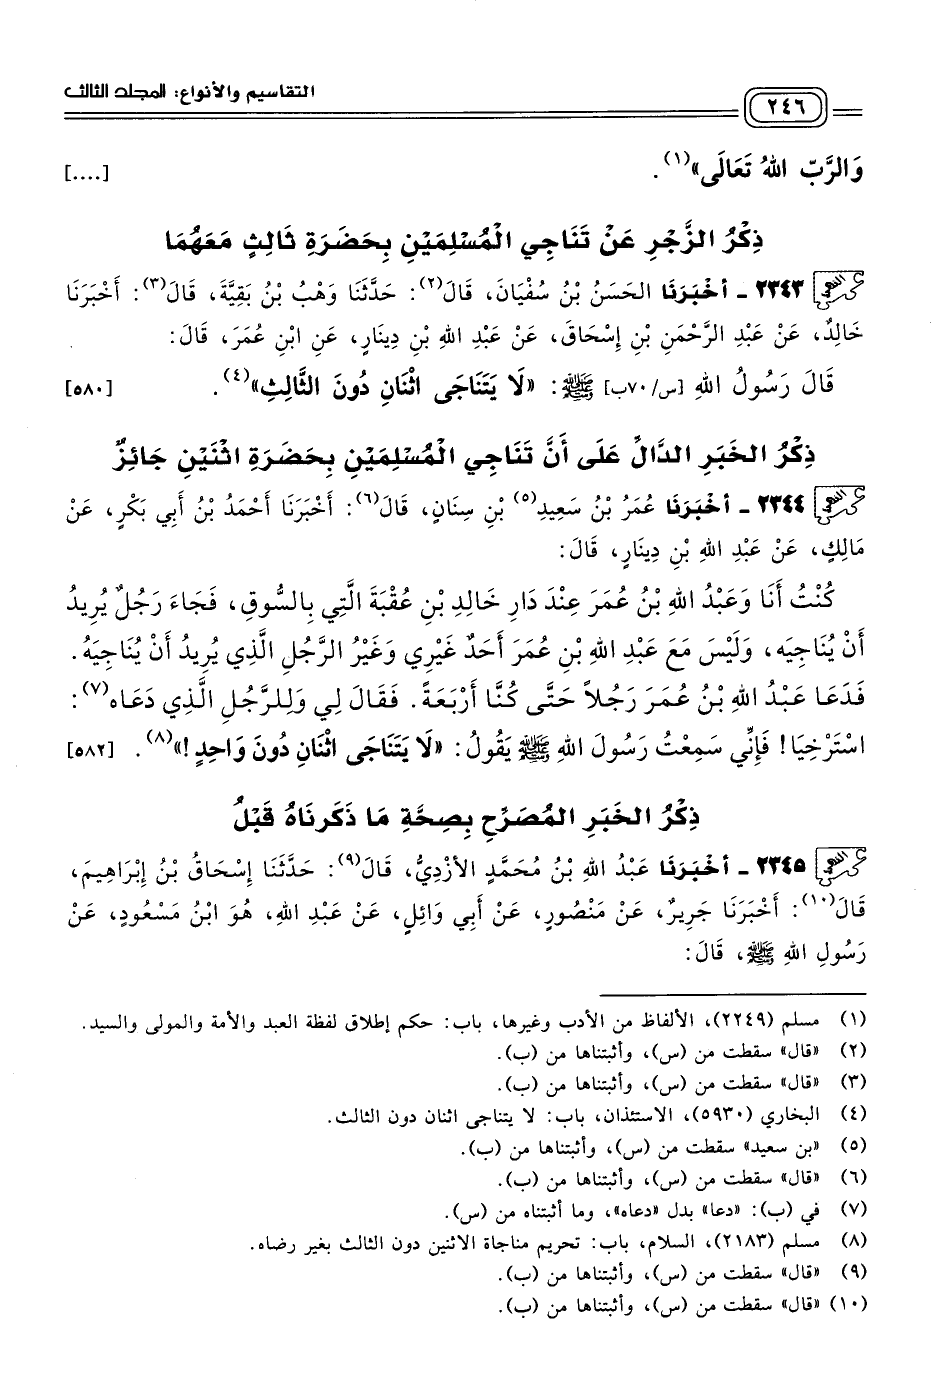 التقاسيم والأنواع: المجلد الثالث
٢٤٦
وَالرَّبّ اللهُ تَعَالَى»(١). [....]
ذِكْرُ الزَّجْرِ عَنْ تَنَاجِي الْمُسْلِمَيْنِ بِحَضْرَةِ ثَالِثٍ مَعَهُمَا
٢٣٤٣ - أخْبَرَنَا الحَسَنُ بْنُ سُفْيَانَ، قَالَ(٢): حَدَّثَنَا وَهْبُ بْنُ بَقِيَّةَ، قَالَ(٣): أَخْبَرَنَا
خَالِدٌ، عَنْ عَبْدِ الرَّحْمَنِ بْنِ إِسْحَاقَ، عَنْ عَبْدِ اللهِ بْنِ دِينَارٍ، عَنِ ابْنِ عُمَرَ، قَالَ:
قَالَ رَسُولُ اللهِ [س/٧٠ب] ﷺ: «لَا يَتَنَاجَى اثْنَانِ دُونَ الثَّالِثِ»(٤). [٥٨٠]
ذِكْرُ الخَبَرِ الدَّالِّ عَلَى أَنَّ تَنَاجِي الْمُسْلِمَيْنِ بِحَضْرَةِ اثْنَيْنِ جَائِزٌ
٢٣٤٤ - أخْبَرَنَا عُمَرُ بْنُ سَعِيدِ(٥) بْنِ سِنَانٍ، قَالَ(٦): أَخْبَرَنَا أَحْمَدُ بْنُ أَبِي بَكْرٍ، عَنْ
مَالِكٍ، عَنْ عَبْدِ اللهِ بْنِ دِينَارٍ، قَالَ:
كُنْتُ أَنَا وَعَبْدُ اللهِ بْنُ عُمَرَ عِنْدَ دَارِ خَالِدِ بْنِ عُقْبَةَ الَّتِي بِالسُّوقِ، فَجَاءَ رَجُلٌ يُرِيدُ
أَنْ يُنَاجِيَه، وَلَيْسَ مَعَ عَبْدِ اللهِ بْنِ عُمَرَ أَحَدٌ غَيْرِي وَغَيْرُ الرَّجُلِ الَّذِي يُرِيدُ أَنْ يُنَاجِيَهُ.
فَدَعَا عَبْدُ اللهِ بْنُ عُمَرَ رَجُلاً حَتَّى كُنَّا أَرْبَعَةً. فَقَالَ لِي وَلِلرَّجُلِ الَّذِي دَعَاه(٧):
اسْتَرْخِيَا! فَإِنِّي سَمِعْتُ رَسُولَ اللهِ ﷺ يَقُولُ: «لَا يَتَنَاجَى اثْنَانِ دُونَ وَاحِدٍ!»(٨). [٥٨٢]
ذِكْرُ الخَبَرِ المُصَرِّحِ بِصِحَّةِ مَا ذَكَرنَاهُ قَبْلُ
٢٣٤٥ - أخْبَرَنَا عَبْدُ اللهِ بْنُ مُحَمَّدٍ الأزْدِيُّ، قَالَ(٩): حَدَّثَنَا إِسْحَاقُ بْنُ إِبْرَاهِيمَ،
قَالَ(١٠): أَخْبَرَنَا جَرِيرٌ، عَنْ مَنْصُورٍ، عَنْ أَبِي وَائِلٍ، عَنْ عَبْدِ اللهِ، هُوَ ابْنُ مَسْعُودٍ، عَنْ
رَسُولِ اللهِ ﷺ، قَالَ:
(١) مسلم (٢٢٤٩)، الألفاظ من الأدب وغيرها، باب: حكم إطلاق لفظة العبد والأمة والمولى والسيد.
(٢) «قال» سقطت من (س)، وأثبتناها من (ب).
(٣) «قال» سقطت من (س)، وأثبتناها من (ب).
(٤) البخاري (٥٩٣٠)، الاستئذان، باب: لا يتناجى اثنان دون الثالث.
(٥) «بن سعيد» سقطت من (س)، وأثبتناها من (ب).
(٦) «قال» سقطت من (س)، وأثبتناها من (ب).
(٧) في (ب): «دعا» بدل «دعاه»، وما أثبتناه من (س).
(٨) مسلم (٢١٨٣)، السلام، باب: تحريم مناجاة الاثنين دون الثالث بغير رضاه.
(٩) «قال» سقطت من (س)، وأثبتناها من (ب).
(١٠) «قال» سقطت من (س)، وأثبتناها من (ب).